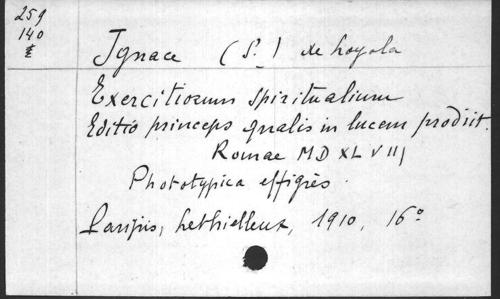 259
140
Ignace (St.) de Loyola
Exercitiorum spiritualium
Editio princeps qualis in lucem prodiit.
Romae MD XL VIII
Phototypica effigies.
Parisiis, Lethielleux, 1910, 16°